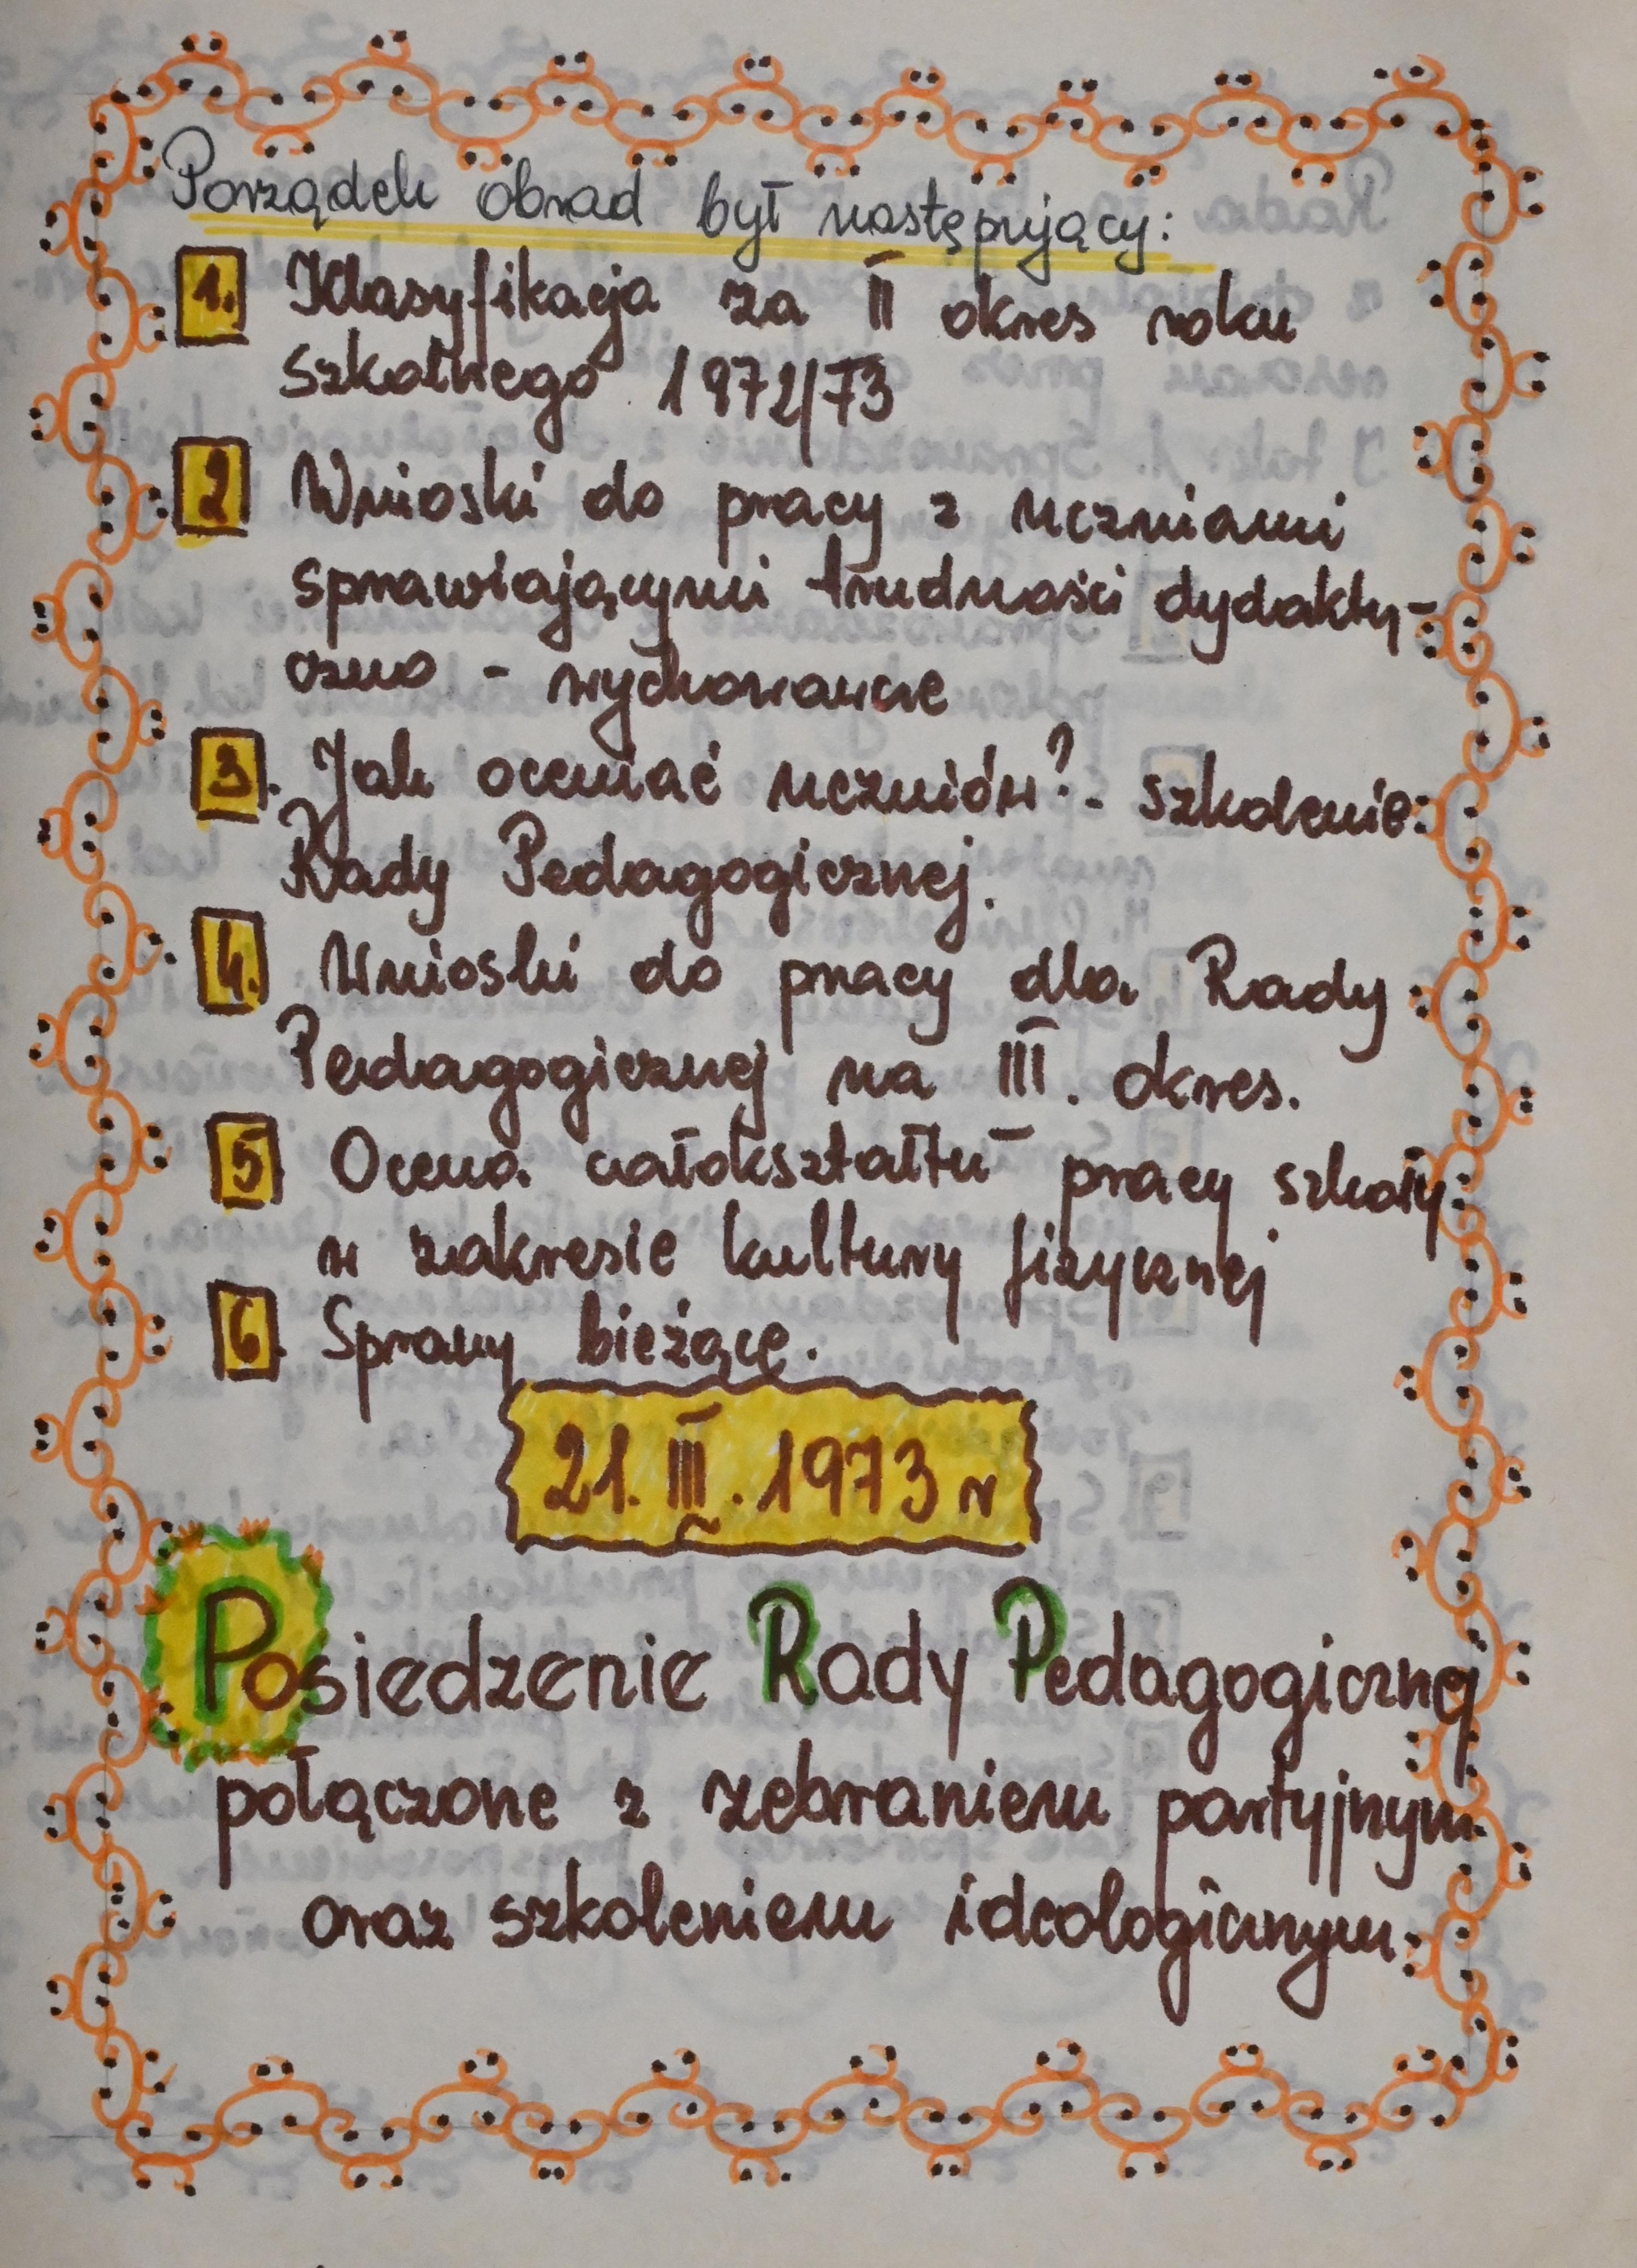 Porządek obrad był następujący:
1. Klasyfikacja za II okres roku
szkolnego 1972/73
2 Wnioski do pracy z uczniami
sprawiającymi trudności dydakty-
czno - wychowawcze
3. Jak oceniać uczniów? - szkolenie
Rady Pedagogicznej.
4. Wnioski do pracy dla Rady
Pedagogicznej na III. okres.
5 Ocena całokształtu pracy szkoły
w zakresie kultury fizycznej
6. Sprawy bieżące.
21. III. 1973 r
Posiedzenie Rady Pedagogicznej
połączone z zebraniem partyjnym
oraz szkoleniem ideologicznym.